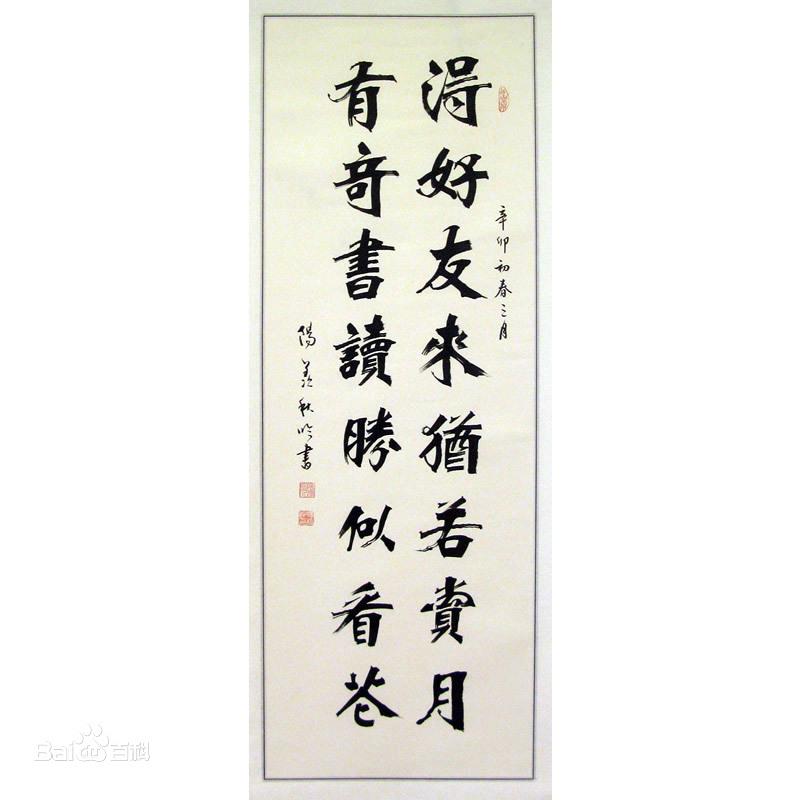 辛卯初春三月
得好友來猶若賞月
有奇書讀勝似看花
陽羨秋吟書
Bai du 百科